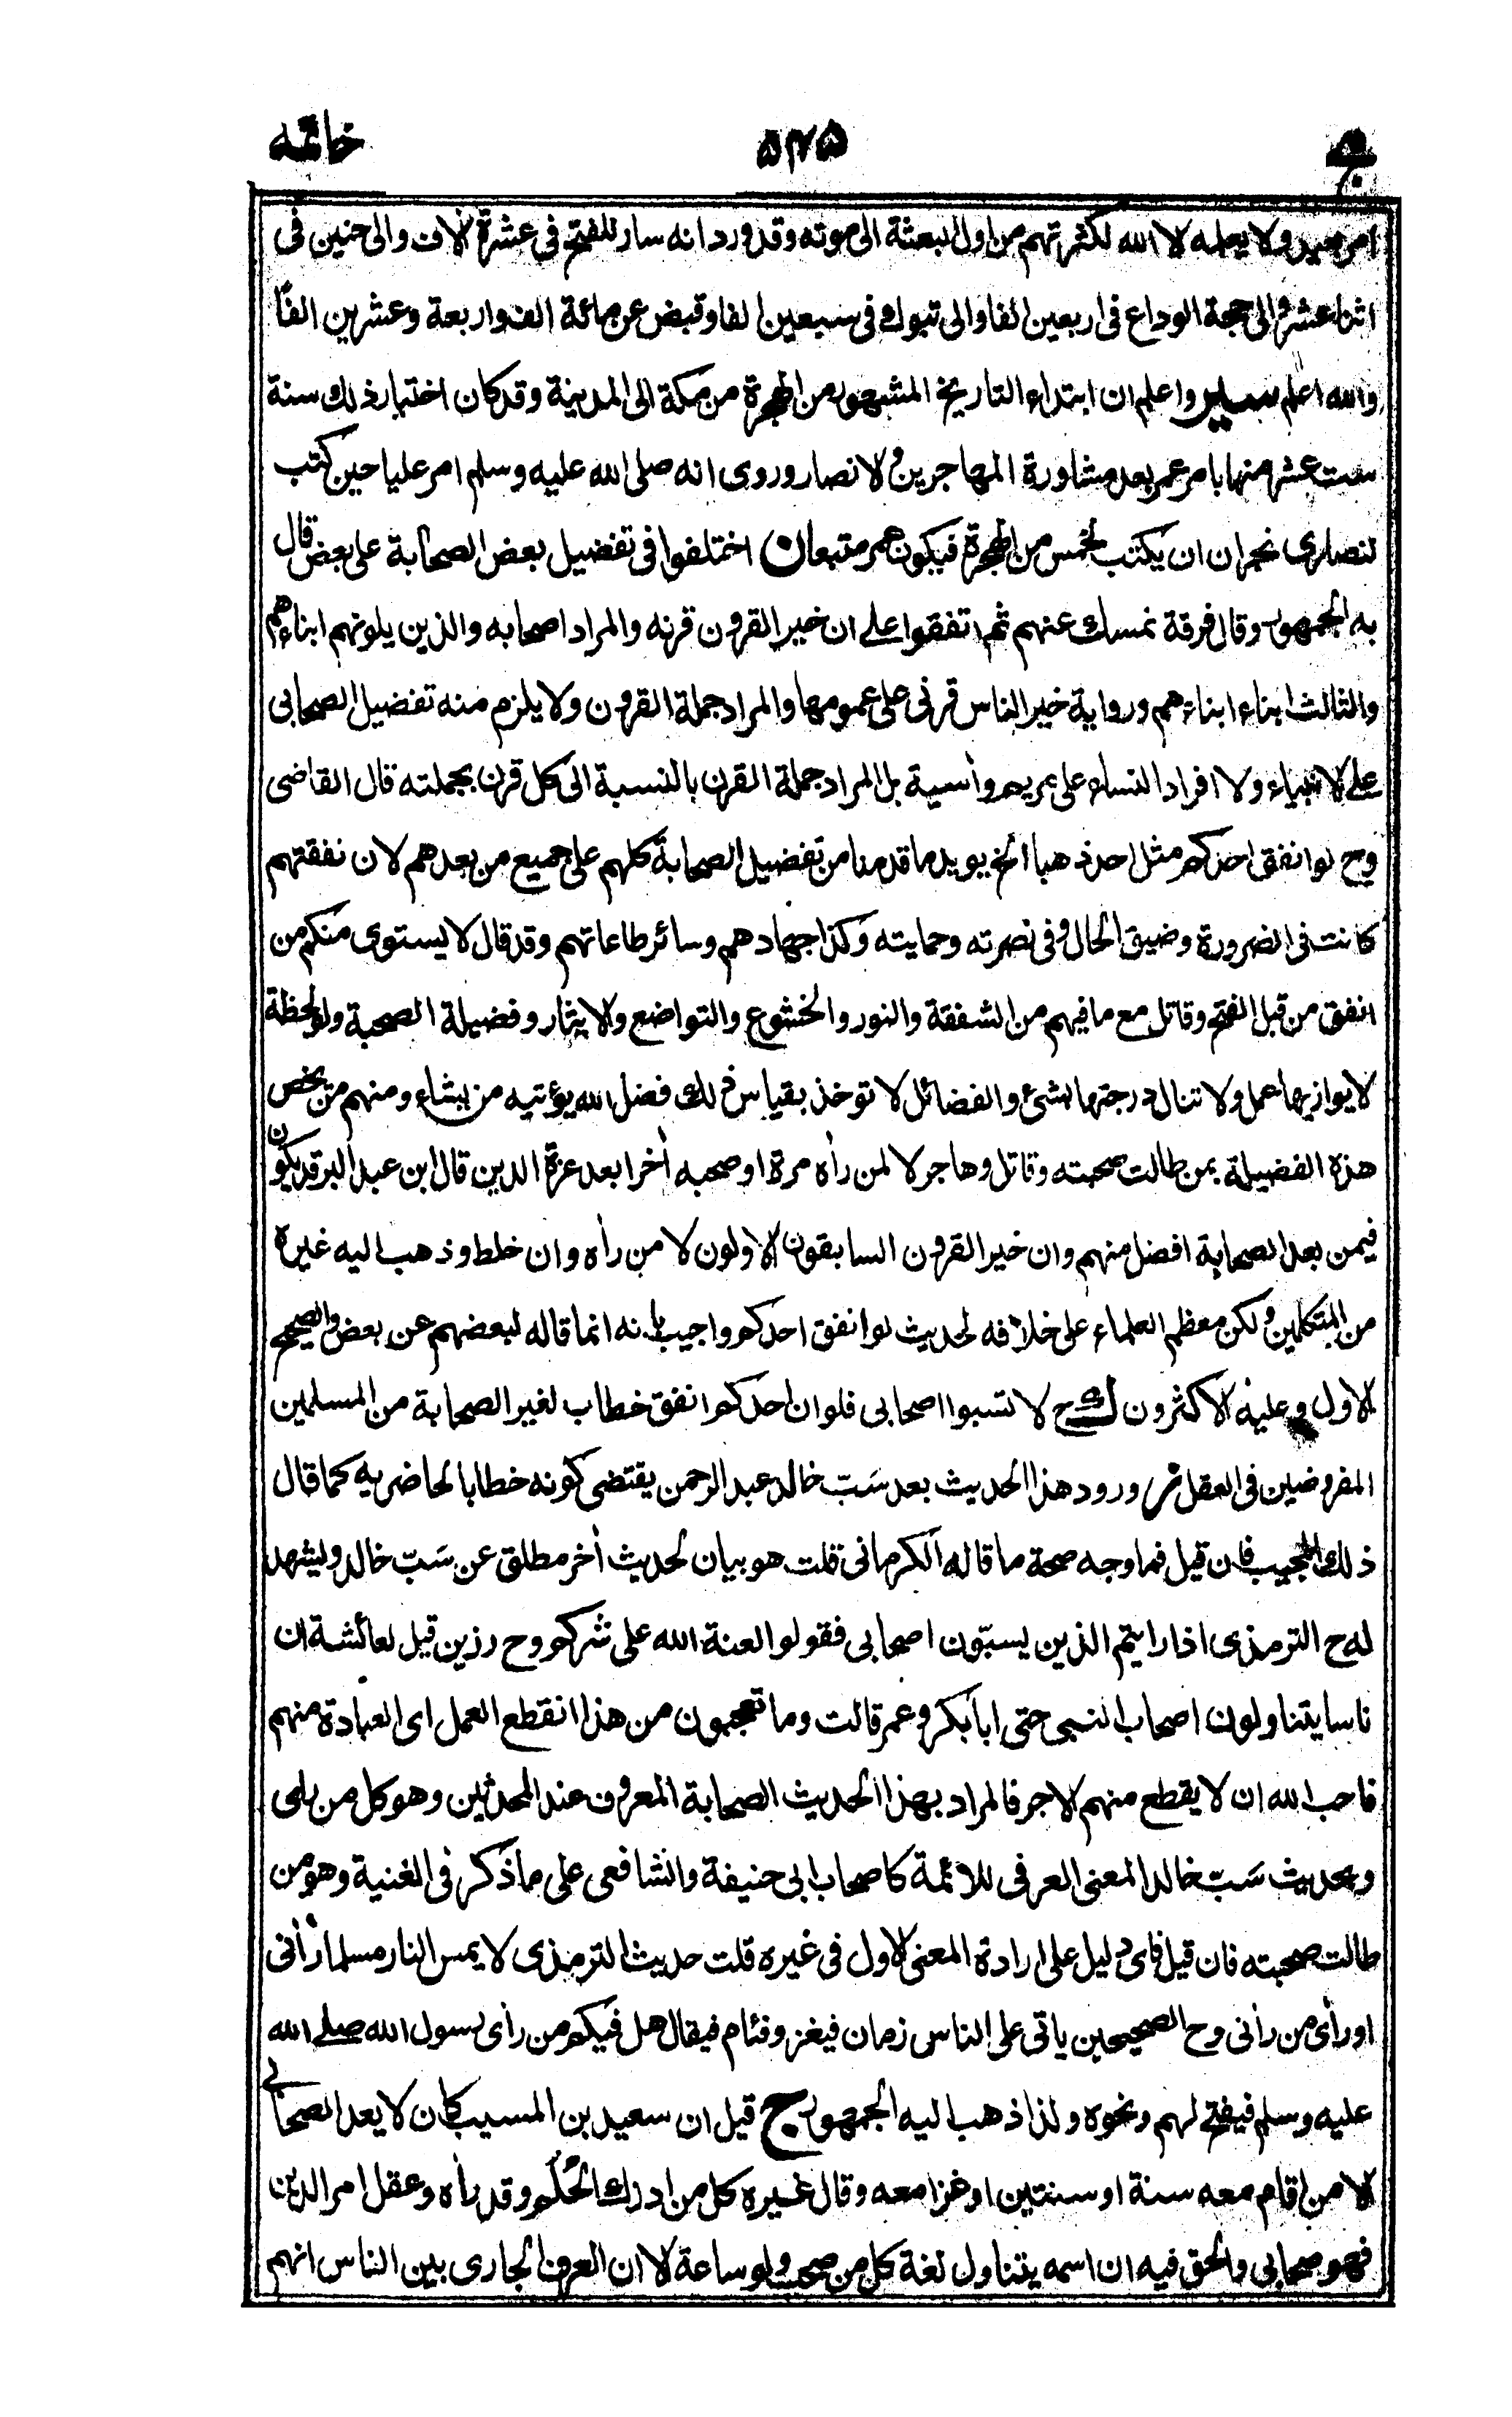 ج ٥٢٥ خاتمه
امر بعيد ولا يعلمه الا الله لكثرتهم من اول البعثة الى موته وقد ورد انه سار للفتح فى عشرة الاف والى حنين فى
اثنا عشر والى حجة الوداع فى اربعين الفا والى تبوك فى سبعين الفا وقبض عن مائة الف واربعة وعشرين الفًا
والله اعلم سير واعلم ان ابتداء التاريخ المشهور من الهجرة من مكة الى المدينة وقد كان اختيار ذلك سنة
ست عشر منها بامر عمر بعد مشاورة المهاجرين والانصار وروى انه صلى الله عليه وسلم امر عليا حين كتب
لنصارى نجران ان يكتب لخمس من الهجرة فيكون عمر متبعا ن اختلفوا فى تفضيل بعض الصحابة على بعض قال
به الجمهور وقال فرقة نمسك عنهم ثم اتفقوا على ان خير القرون قرنه والمراد اصحابه والذين يلونهم ابناءهم
والثالث ابناء ابناءهم ورواية خير الناس قرنى على عمومها والمراد جملة القرون ولا يلزم منه تفضيل الصحابى
على الانبياء ولا افراد النساء على مريم وأسية بل المراد جملة القرن بالنسبة الى كل قرن بجملته قال القاضى
وح لو انفق احدكم مثل احد ذهبا الخ يويد ما قدمنا من تفضيل الصحابة كلهم على جميع من بعدهم لان نفقتهم
كانت فى الضرورة وضيق الحال وفى نصرته وحمايته وكذا جهادهم وسائر طاعاتهم وقد قال لا يستوى منكم من
انفق من قبل الفتح وقاتل مع ما فيهم من الشفقة والنور والخشوع والتواضع والايثار وفضيلة الصحبة ولو لحظة
لا يوازيها عمل ولا تنال درجتها بشئ والفضائل لا توخذ بقياس ذلك فضل الله يؤتيه من يشاء ومنهم من يخص
هذه الفضيلة بمن طالت صحبته وقاتل وهاجر لا لمن رأه مرة او صحبه أخرا بعد عزة الدين قال ابن عبد البر قد يكون
فيمن بعد الصحابة افضل منهم وان خير القرون السابقون الاولون لا من رأه وان خلط وذهب اليه غيره
من المتكلمين ولكن معظم العلماء على خلافه لحديث لو انفق احدكم واجيب بانه انما قاله لبعضهم عن بعض والصحيح
الاول وعليه الاكثرون ك ح لا تسبوا اصحابى فلو ان احدكم انفق خطاب لغير الصحابة من المسلمين
المفروضين فى العقل ورود هذا الحديث بعد سَبّ خالد عبد الرحمن يقتضى كونه خطابا لحاضريه كما قال
ذلك المجيب فان قيل فما وجه صحة ما قاله الكرمانى قلت هو بيان لحديث أخر مطلق عن سَبّ خالد وليشهد
له ح الترمذى اذا رايتم الذين يسبّون اصحابى فقولوا لعنة الله على شركم وح رزين قيل لعائشة ان
ناسا يتناولون اصحاب النبى حتى ابا بكر وعمر قالت وما تعجبون من هذا انقطع العمل اى العبادة منهم
فاحب الله ان لا يقطع منهم الاجر فالمراد بهذا الحديث الصحابة المعروف عند المحدثين وهو كل من
وبحديث سَبّ خالد المعنى العرفى للائمة كاصحاب ابى حنيفة والشافعى على ما ذكر فى الغنية وهو من
طالت صحبته فان قيل فاى دليل على ارادة المعنى الاول فى غيره قلت حديث الترمذى لا يمس النار مسلما رأنى
او رأى من رأنى وح الصحيحين ياتى على الناس زمان فيغزو فئام فيقال هل فيكم من رأى رسول الله صلى الله
عليه وسلم فيفتح لهم ونحوه ولذا ذهب اليه الجمهور ج قيل ان سعيد بن المسيب كان لا يعد الصحابى
الا من اقام معه سنة او سنتين او غزا معه وقال غيره كل من ادرك الحُلُم وقد رأه وعقل امر الدين
فهو صحابى والحق فيه ان اسمه يتناول لغة كل من صحب ولو ساعة الا ان العرف الجارى بين الناس انهم